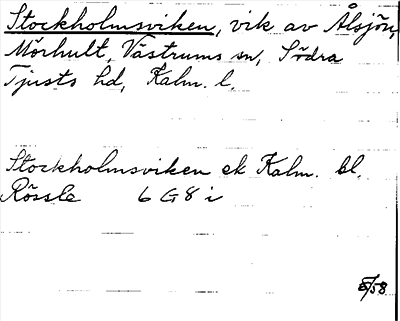 Stockholmsviken, vik av Ålsjön,
Mörhult, Västrums sn, Södra
Tjusts hd, Kalm. l.
Stockholmsviken ek Kalm. bl.
Rössle 6 G 8 i
5/58